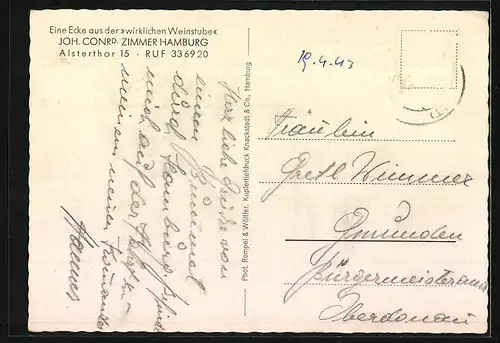 Eine Ecke aus der »wirklichen Weinstube«
JOH. CONRD. ZIMMER HAMBURG
Alsterthor 15 · RUF 33 69 20
19.4.43
Herzliche Grüße von
einem
durch Hamburg.
mich auf der Fahrt
meinem neuen
Hannes.
Phot. Rompel & Wölffer, Kupfertiefdruck Knackstedt & Co., Hamburg
Fräulein
Gretl Wimmer
Gmunden
Bürgermeisteramt
Oberdonau